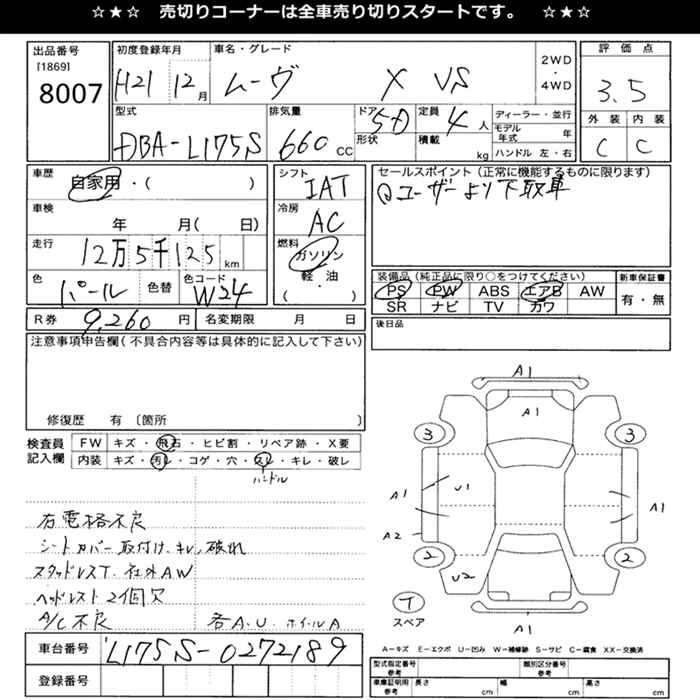 ☆★☆　売切りコーナーは全車売り切りスタートです。　☆★☆
出品番号
[1869]
8007
初度登録年月
H21 12月
車名・グレード
ムーヴ X VS
2WD
・
4WD
評価点
3.5
外装 内装
C C
型式
DBA-L175S
排気量
660 CC
ドア 5D
形状
定員 4人
積載 kg
ディーラー・並行
モデル年式 年
ハンドル 左・右
車歴
自家用・( )
車検
年 月( 日)
走行
12万5千125 km
色
パール
色替
色コード
W24
シフト
IAT
冷房
AC
燃料
ガソリン
軽・油
( )
セールスポイント（正常に機能するものに限ります）
①ユーザーより下取車
装備品（純正品に限り○をつけてください）
PS PW ABS エアB AW
SR ナビ TV カワ
新車保証書
有・無
R券 9,260 円 名変期限 月 日
後日品
注意事項申告欄（不具合内容等は具体的に記入して下さい）
修復歴 有 〔箇所 〕
検査員記入欄
FW キズ・飛石・ヒビ割・リペア跡・X要
内装 キズ・汚レ・コゲ・穴・スレ・キレ・破レ
ハンドル
右電格不良
シートカバー取付け、キレ、破れ
スタッドレスT 社外AW
ヘッドレスト2個欠
A/C不良
各A.U. ホイールA
車台番号 L175S-0272189
登録番号
A1
A1
3 3
A1 U1 A1
A2
2 2
U2
T
スペア
A1
A-キズ E-エクボ U-凹み W-補修跡 S-サビ C-腐食 XX-交換済
型式指定番号
参考
類別区分番号
参考
車庫証明用
参考
長さ cm 幅 cm 高さ cm